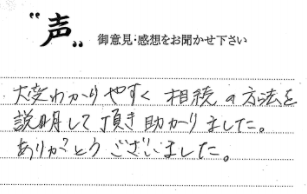 “声„ 御意見・感想をお聞かせ下さい
大変わかりやすく相続の方法を
説明して頂き助かりました。
ありがとうございました。